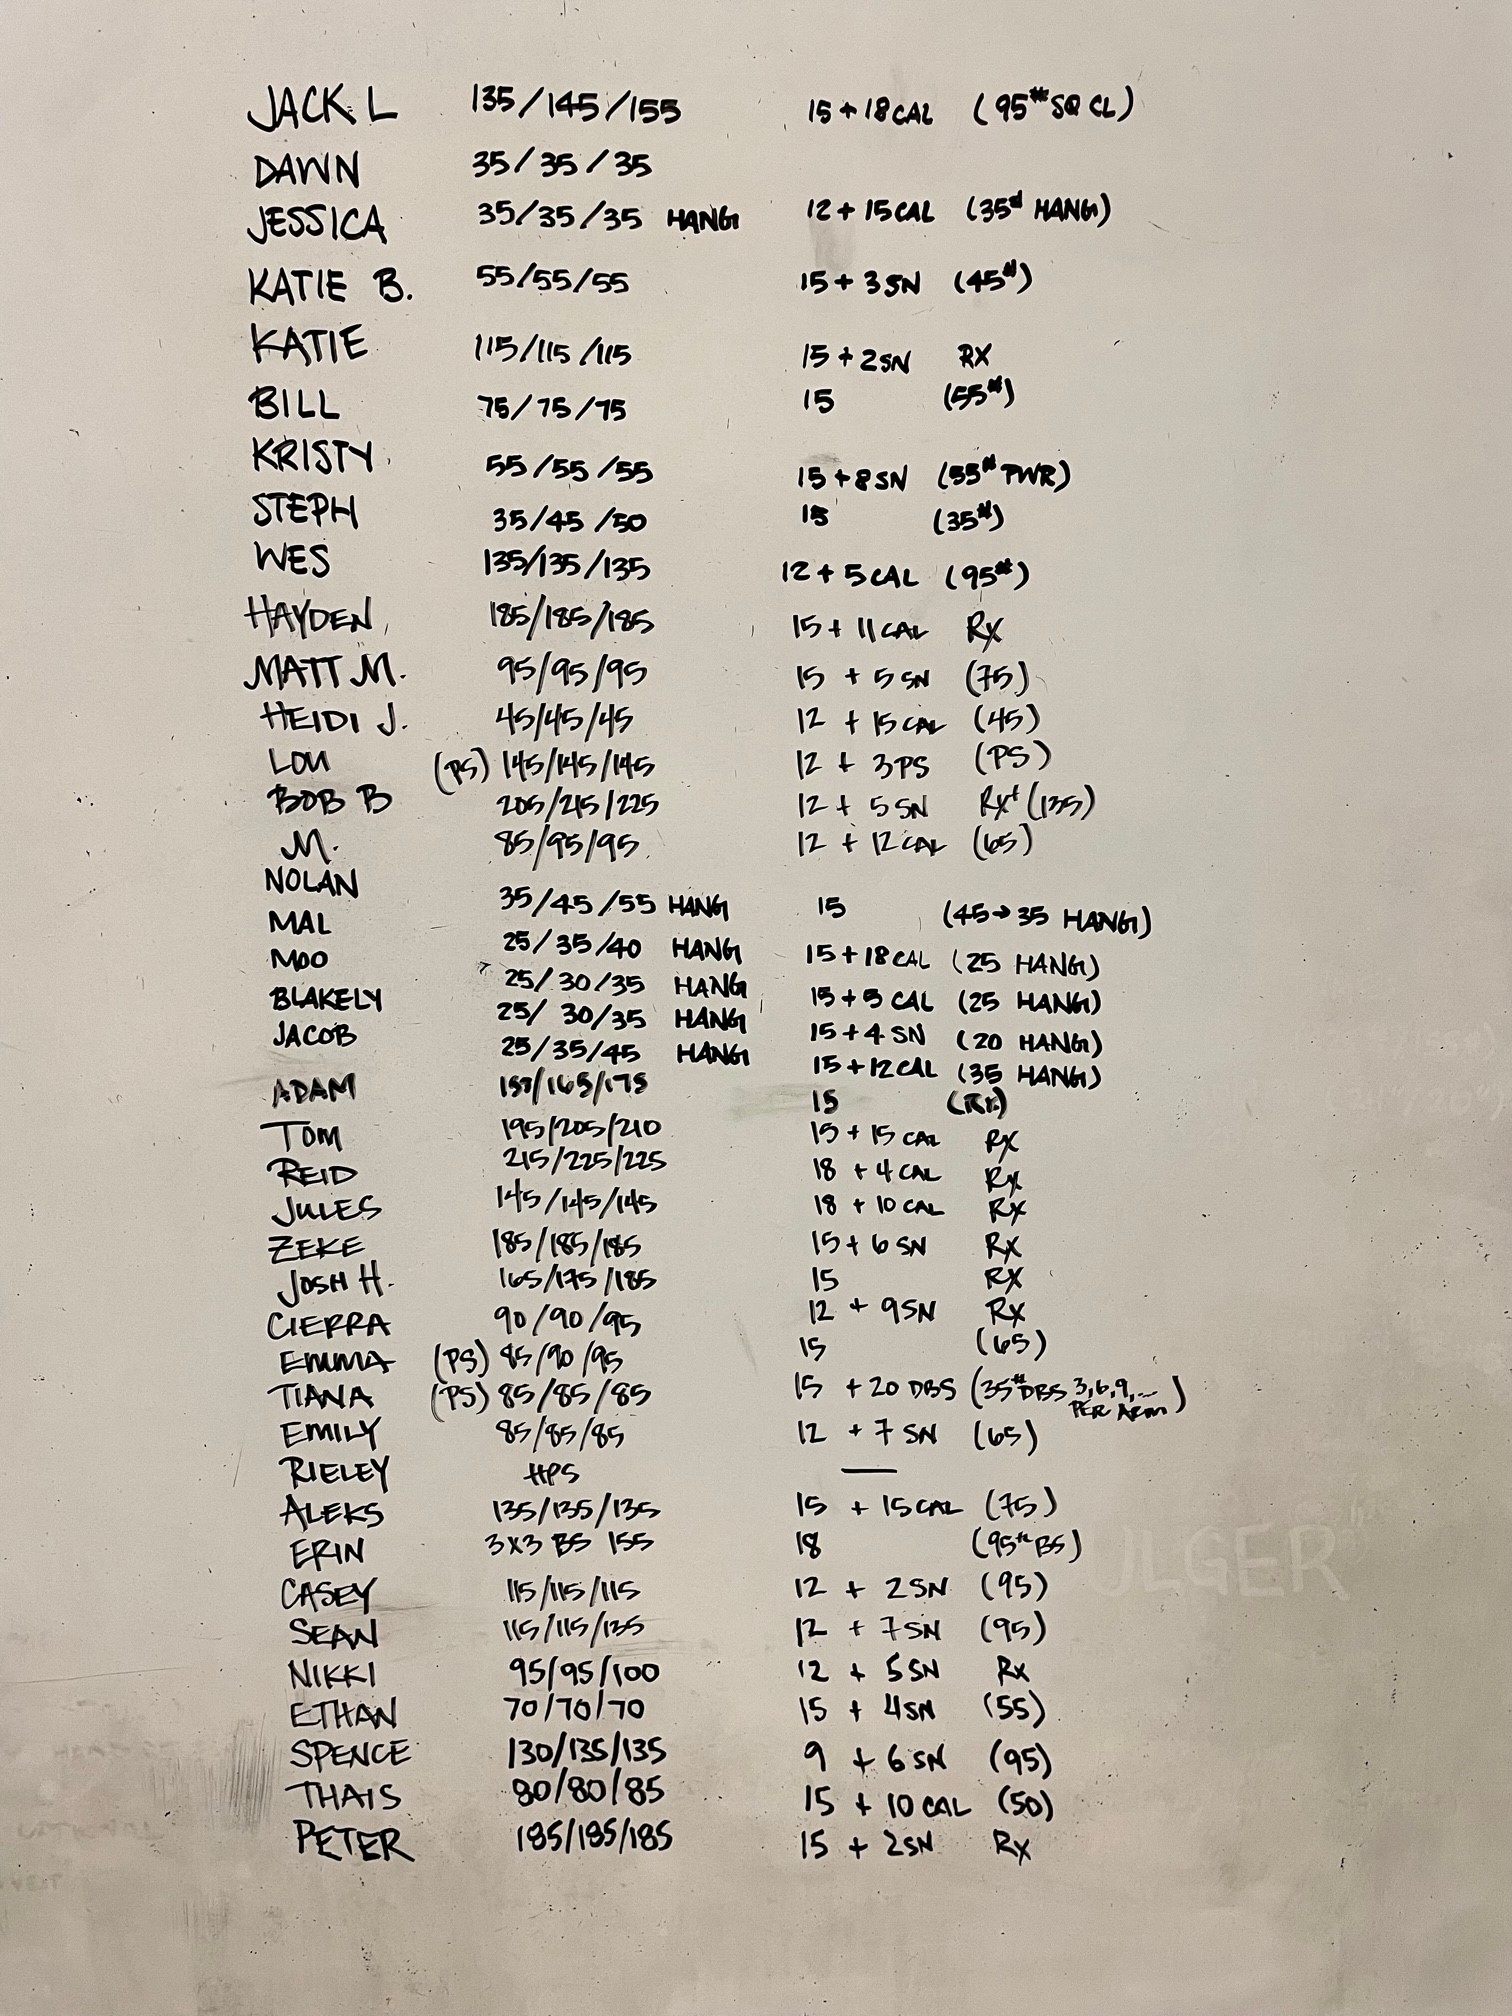 JACK L 135/145/155 15+18CAL (95# SQ CL)
DAWN 35/35/35
JESSICA 35/35/35 HANG 12+15CAL (35# HANG)
KATIE B. 55/55/55 15+3SN (45#)
KATIE 115/115/115 15+2SN RX
BILL 75/75/75 15 (55#)
KRISTY 55/55/55 15+8SN (55# PWR)
STEPH 35/45/50 15 (35#)
WES 135/135/135 12+5CAL (95#)
HAYDEN 185/185/185 15+11CAL Rx
MATT M. 95/95/95 15 + 5SN (75)
HEIDI J. 45/45/45 12 + 15CAL (45)
LOU (PS) 145/145/145 12 + 3PS (PS)
BOB B 205/215/225 12 + 5SN Rx+ (135)
M. 85/95/95 12 + 12CAL (65)
NOLAN 35/45/55 HANG 15 (45→35 HANG)
MAL 25/35/40 HANG 15+18CAL (25 HANG)
MOO 25/30/35 HANG 15+5 CAL (25 HANG)
BLAKELY 25/30/35 HANG 15+4 SN (20 HANG)
JACOB 25/35/45 HANG 15+12CAL (35 HANG)
ADAM 155/165/175 15 (Rx)
TOM 195/205/210 15+15 CAL Rx
REID 215/225/225 18 + 4CAL Rx
JULES 145/145/145 18 + 10CAL Rx
ZEKE 185/185/185 15+ 6SN Rx
JOSH H. 165/175/185 15 Rx
CIERRA 90/90/95 12 + 9SN Rx
EMMA (PS) 85/90/95 15 (65)
TIANA (PS) 85/85/85 15 + 20 DBS (35# DBS 3,6,9,... PER ARM)
EMILY 85/85/85 12 + 7 SN (65)
RIELEY HPS —
ALEKS 135/135/135 15 + 15CAL (75)
ERIN 3x3 BS 155 18 (95# BS)
CASEY 115/115/115 12 + 2SN (95)
SEAN 115/115/135 12 + 7SN (95)
NIKKI 95/95/100 12 + 5SN Rx
ETHAN 70/70/70 15 + 4SN (55)
SPENCE 130/135/135 9 + 6SN (95)
THAIS 80/80/85 15 + 10 CAL (50)
PETER 185/185/185 15 + 2SN Rx
ULGER